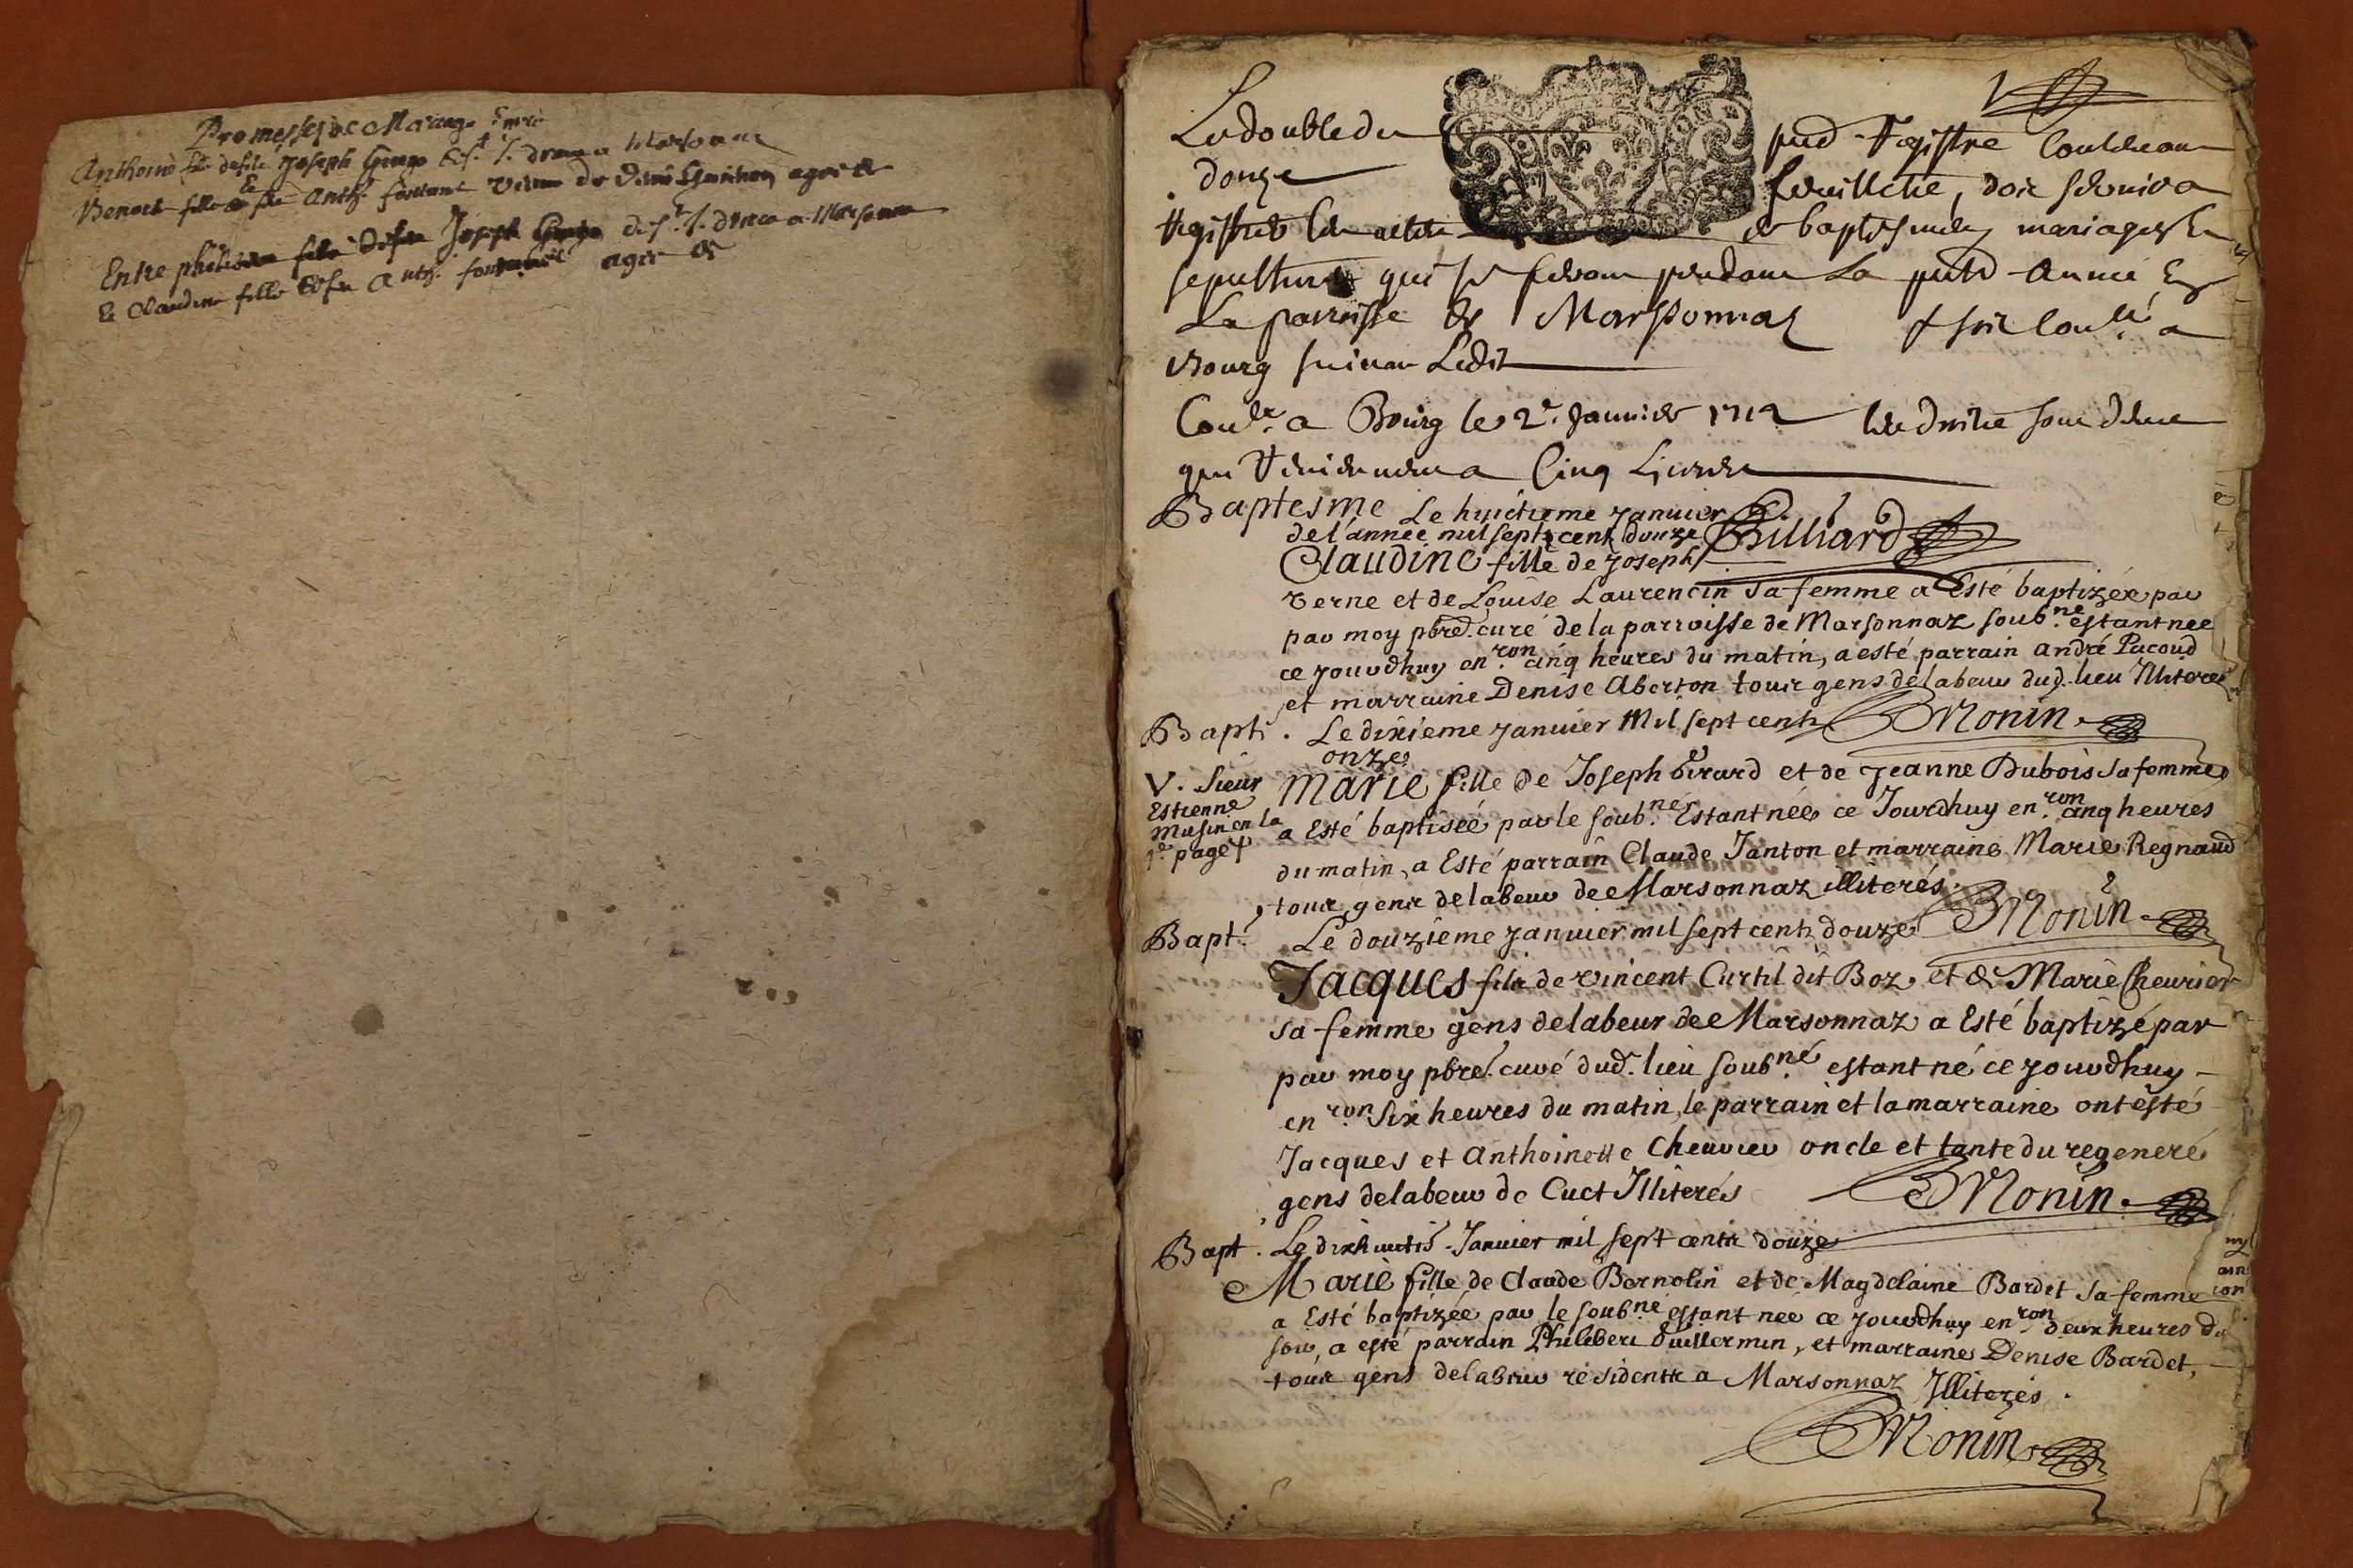 Promesses de Mariage Entre
Anthoine fils de feu Joseph Gurgo
Benoite fille de feu Anth. fontanel agée de
Entre philib fils de feu Joseph a Marsonna
Et Claudine fille de feu Anth. agée de
Le double du pnt Registre contenant
douze feuillets, doit servir a
registrer les actes de baptesmes, mariages Et
sepultures qui se feront pendant La pnte Année En
La parroisse de Marsonnaz
Bourg suivant Ledit
a Bourg le 2e. Janvier 1712 les droits sont deux
qui reviennent a Cinq Livres
Billiard
Baptesme Le huictieme Janvier
de l'année mil sept cents douze
Claudine fille de Joseph
verne et de Louise Laurencin sa femme a Esté baptizée par
par moy pbre. curé de la parroisse de Marsonnaz soub.né estant née
ce jourdhuy en.ron cinq heures du matin, a esté parrain andré Pacoud
et marraine Denise Aberton tous gens de labeur dud. lieu Illiteres
Monin
Bapt. Le dixieme Janvier Mil sept cents
onze
V. Sieur
Estienne
Musin en la
1e page +
Marie fille de Joseph Girard et de Jeanne Dubois sa femme
a Esté baptisée par le soub.né Estant née ce Jourdhuy en.ron cinq heures
du matin, a Esté parrain Claude Janton et marraine Marie Regnaud
tous gens de labeur de Marsonnaz illiterés.
Monin
Bapt. Le douzieme Janvier mil sept cents douze
Jacques fils de vincent Curtil dit Boz et de Marie Cheurier
sa femme gens de labeur de Marsonnaz a Esté baptizé par
par moy pbre. curé dud. lieu soub.né estant né ce jourdhuy
en.ron six heures du matin, le parrain et la marraine ont esté
Jacques et Anthoinette Cheurier oncle et tante du regeneré
gens de labeur de Cuet Illiterés
Monin
Bapt. Le dixhuict. Janvier mil sept cents douze
Marie fille de Claude Bernolin et de Magdelaine Bardet sa femme
a Esté baptizée par le soub.né estant née ce jourdhuy en.ron deux heures du
soir, a esté parrain Philibert Guillermin, et marraine Denise Bardet,
tous gens de labeur résidents a Marsonnaz Illiterés.
Monin